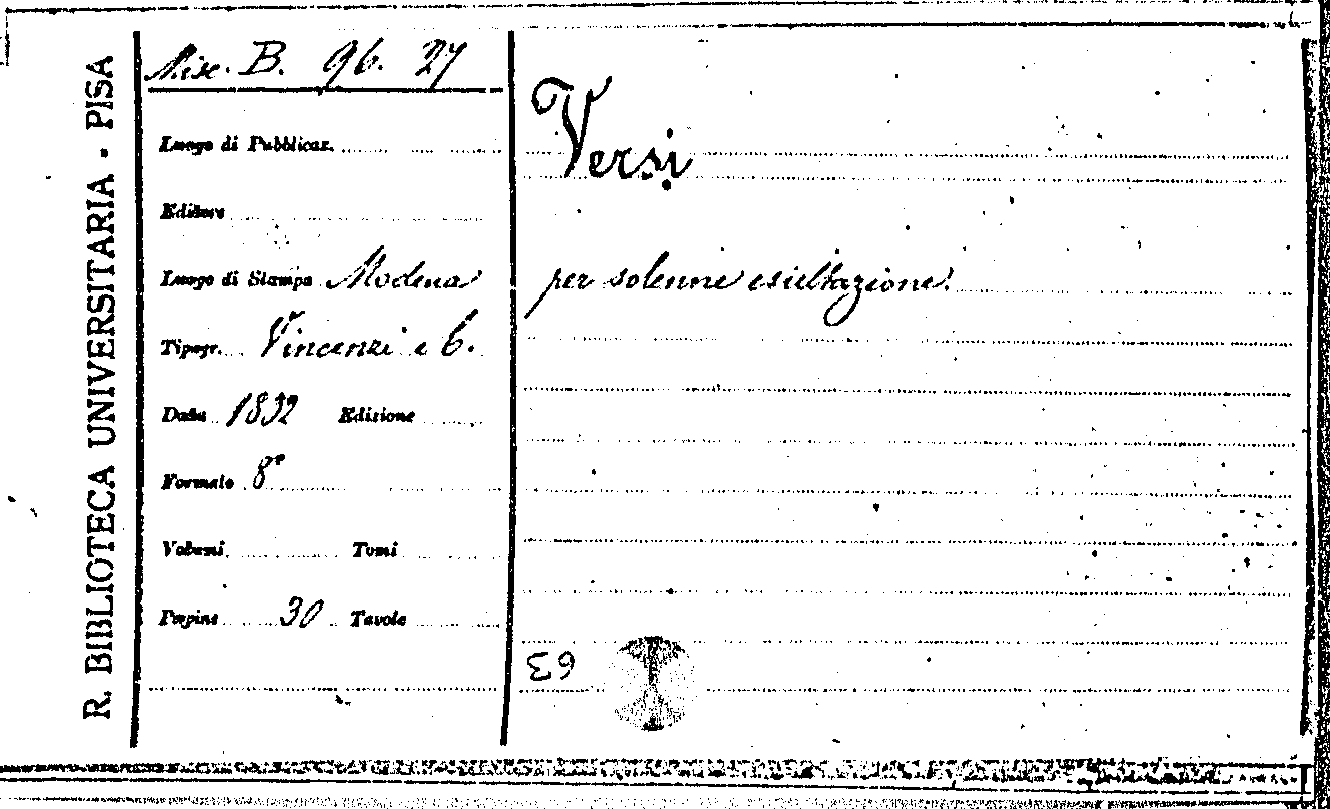 R. BIBLIOTECA UNIVERSITARIA - PISA
Misc. B. 96. 27
Luogo di Pubblicaz.
Editore
Luogo di Stampa Modena
Tipogr. Vincenzi e C.
Data 1832 Edizione
Formato 8°
Volumi Tomi
Pagine 30 Tavole
Versi
per solenne esultazione.